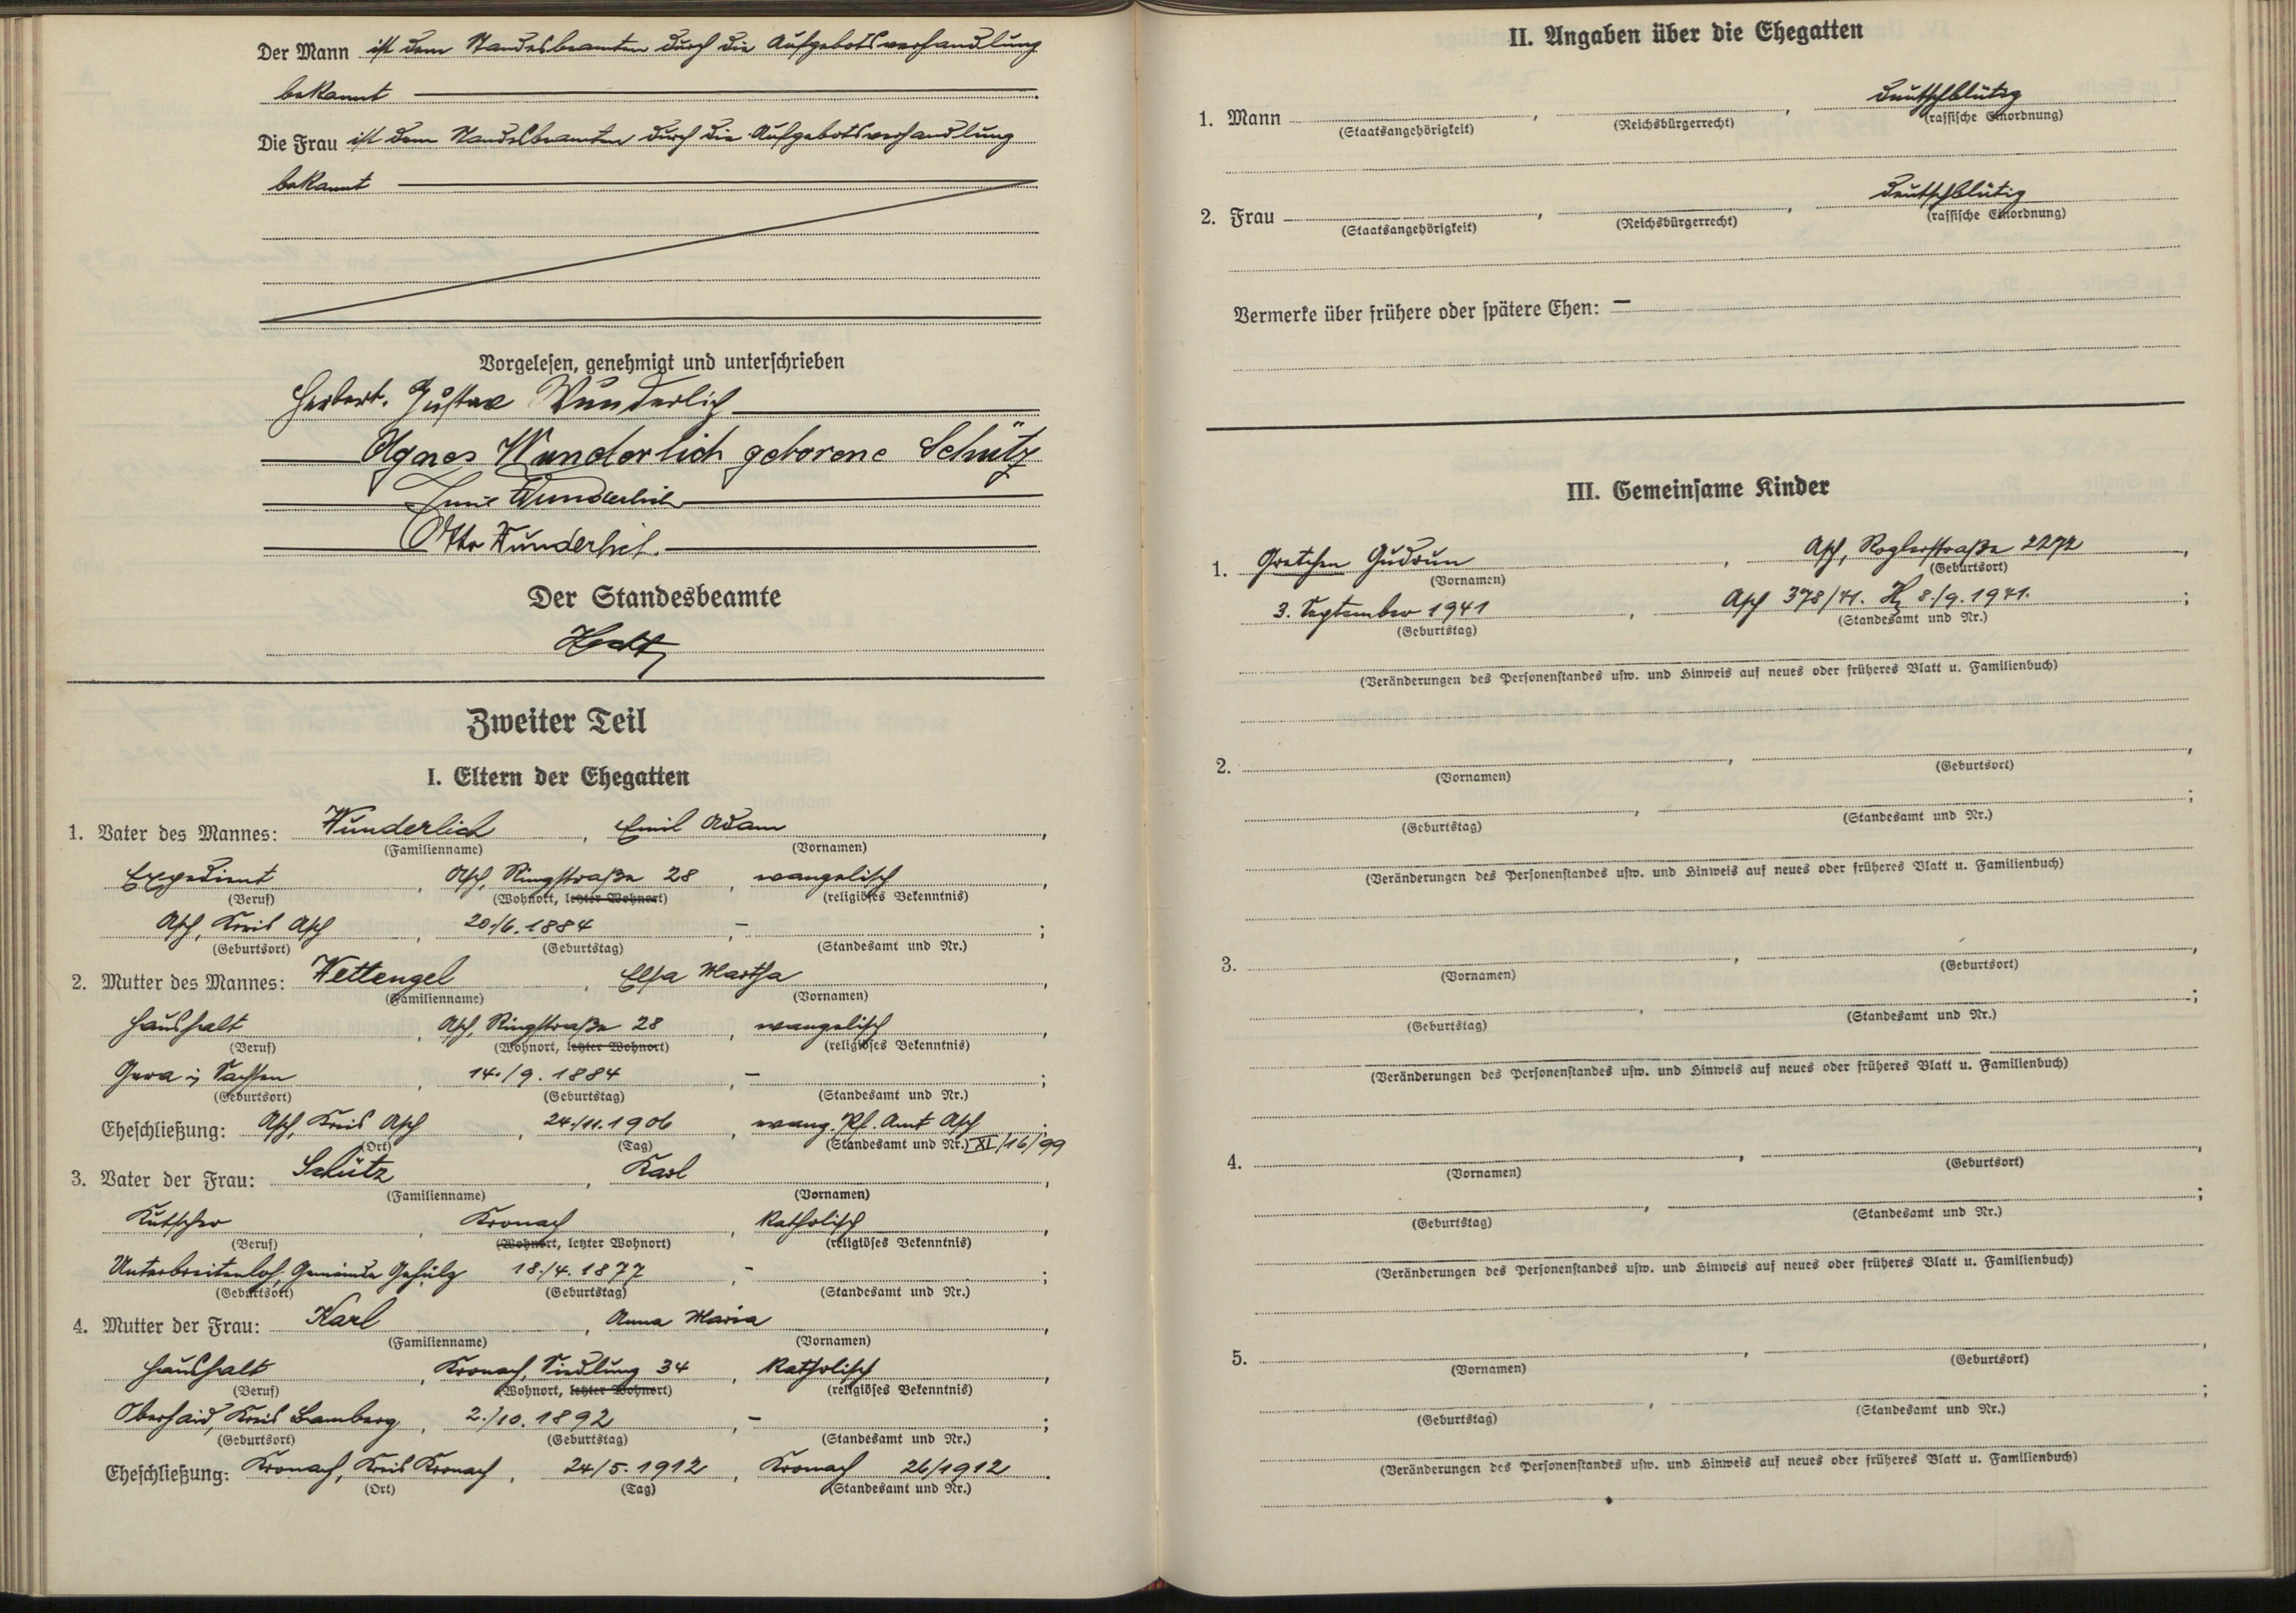 Der Mann ist dem Standesbeamten durch die Aufgebotsverhandlung
bekannt
Die Frau ist dem Standesbeamten durch die Aufgebotsverhandlung
bekannt
Vorgelesen, genehmigt und unterschrieben
Herbert. Gustav Wunderlich
Agnes Wunderlich geborene Schütz
Emil Wunderlich
Otto Wunderlich.
Der Standesbeamte
Zweiter Teil
I. Eltern der Ehegatten
1. Vater des Mannes: Wunderlich, Emil Adam,
(Familienname) (Vornamen)
Expedient, Asch, Ringstraße 28, evangelisch,
(Beruf) (Wohnort, letzter Wohnort) (religiöses Bekenntnis)
Asch, Kreis Asch, 20./6.1884, -;
(Geburtsort) (Geburtstag) (Standesamt und Nr.)
2. Mutter des Mannes: Wettengel, Elsa Martha,
(Familienname) (Vornamen)
Haushalt, Asch, Ringstraße 28, evangelisch,
(Beruf) (Wohnort, letzter Wohnort) (religiöses Bekenntnis)
Gera i. Sachsen, 14./9.1884, -;
(Geburtsort) (Geburtstag) (Standesamt und Nr.)
Eheschließung: Asch, Kreis Asch, 24./11.1906, evang. Pf. Amt Asch.
(Ort) (Tag) (Standesamt und Nr.) XI/16/99
3. Vater der Frau: Schütz, Karl,
(Familienname) (Vornamen)
Kutscher, Kronach, katholisch,
(Beruf) (Wohnort, letzter Wohnort) (religiöses Bekenntnis)
Unterbreitenloh, Gemeinde Gehülz 18./4.1877, -;
(Geburtsort) (Geburtstag) (Standesamt und Nr.)
4. Mutter der Frau: Karl, Anna Maria,
(Familienname) (Vornamen)
Haushalt, Kronach, Siedlung 34, katholisch,
(Beruf) (Wohnort, letzter Wohnort) (religiöses Bekenntnis)
Oberhaid, Kreis Bamberg, 2./10.1892, -;
(Geburtsort) (Geburtstag) (Standesamt und Nr.)
Eheschließung: Kronach, Kreis Kronach, 24/5.1912, Kronach 26/1912.
(Ort) (Tag) (Standesamt und Nr.)
II. Angaben über die Ehegatten
1. Mann , , deutschblütig
(Staatsangehörigkeit) (Reichsbürgerrecht) (rassische Einordnung)
2. Frau , , deutschblütig
(Staatsangehörigkeit) (Reichsbürgerrecht) (rassische Einordnung)
Vermerke über frühere oder spätere Ehen: -
III. Gemeinsame Kinder
1. Gretchen Gudrun, Asch, Roglerstraße 2272,
(Vornamen) (Geburtsort)
3. September 1941, Asch 378/41. 8./9.1941.;
(Geburtstag) (Standesamt und Nr.)
(Veränderungen des Personenstandes usw. und Hinweis auf neues oder früheres Blatt u. Familienbuch)
2. , ,
(Vornamen) (Geburtsort)
, ;
(Geburtstag) (Standesamt und Nr.)
(Veränderungen des Personenstandes usw. und Hinweis auf neues oder früheres Blatt u. Familienbuch)
3. , ,
(Vornamen) (Geburtsort)
, ;
(Geburtstag) (Standesamt und Nr.)
(Veränderungen des Personenstandes usw. und Hinweis auf neues oder früheres Blatt u. Familienbuch)
4. , ,
(Vornamen) (Geburtsort)
, ;
(Geburtstag) (Standesamt und Nr.)
(Veränderungen des Personenstandes usw. und Hinweis auf neues oder früheres Blatt u. Familienbuch)
5. , ,
(Vornamen) (Geburtsort)
, ;
(Geburtstag) (Standesamt und Nr.)
(Veränderungen des Personenstandes usw. und Hinweis auf neues oder früheres Blatt u. Familienbuch)